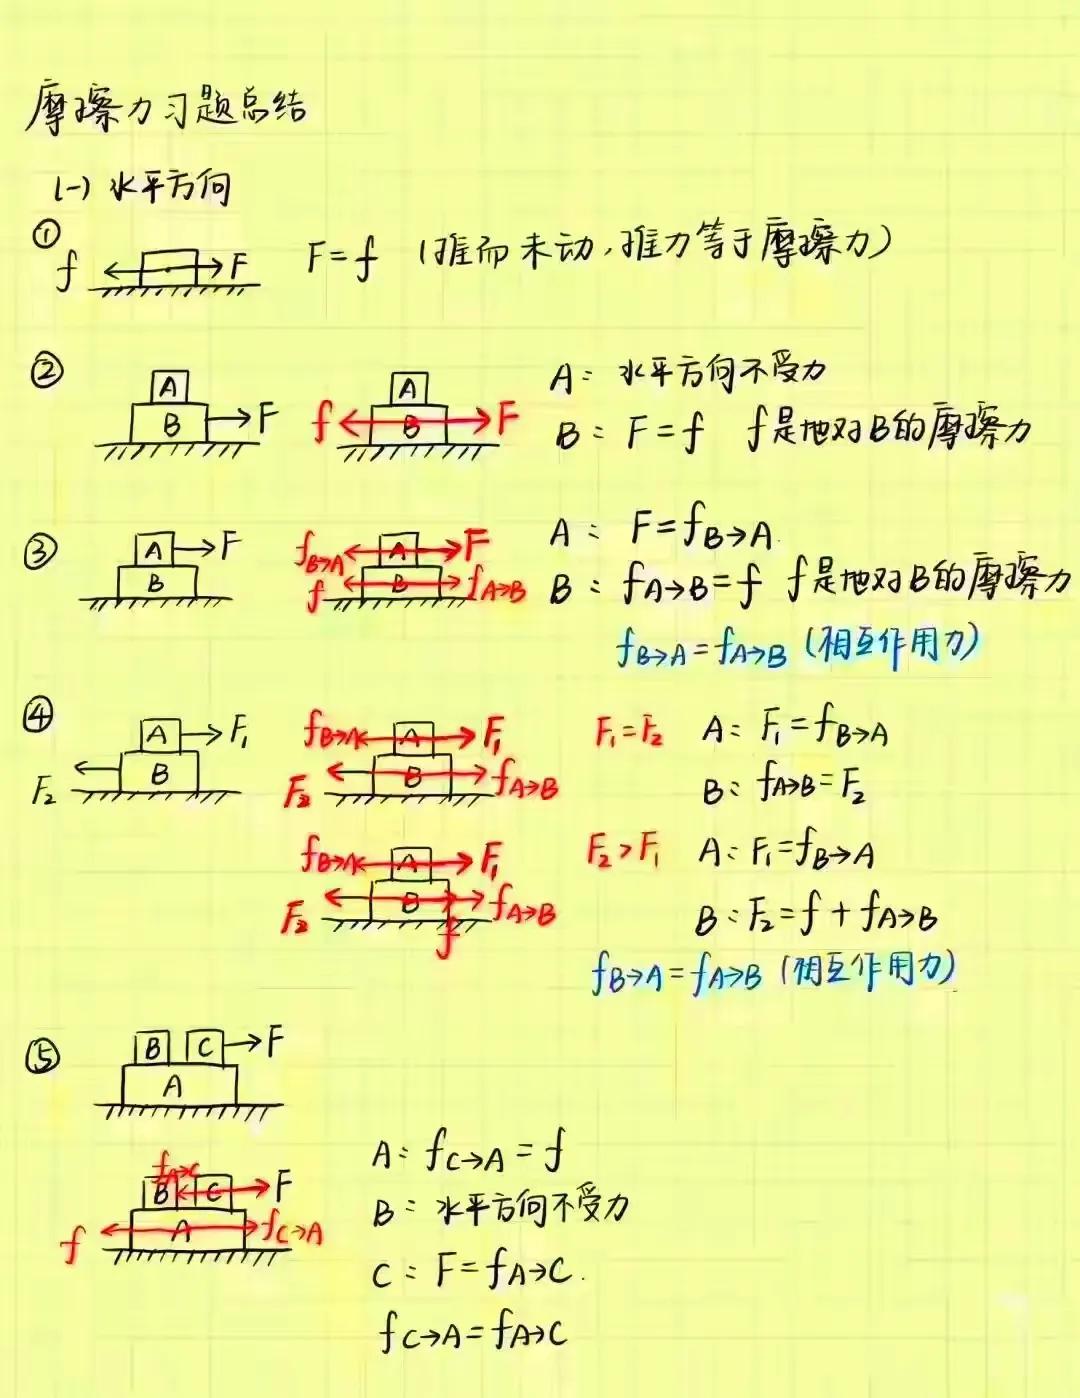 摩擦力习题总结
(一) 水平方向
①
f F F=f (推而未动,推力等于摩擦力)
②
A B F
f A B F
A: 水平方向不受力
B: F=f f是地对B的摩擦力
③
A F B
fB→A A F
f B fA→B
A: F=fB→A
B: fA→B=f f是地对B的摩擦力
fB→A=fA→B (相互作用力)
④
A F₁
F₂ B
fB→A A F₁
F₂ B fA→B
F₁=F₂ A: F₁=fB→A
B: fA→B=F₂
fB→A A F₁
F₂ B fA→B
f
F₂>F₁ A: F₁=fB→A
B: F₂=f+fA→B
fB→A=fA→B (相互作用力)
⑤
B C F
A
fA→C
B C F
f A fC→A
A: fC→A=f
B: 水平方向不受力
C: F=fA→C.
fC→A=fA→C